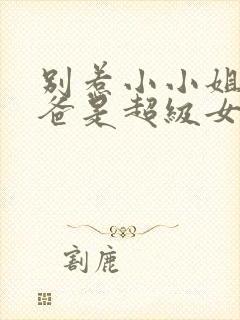 别惹小小姐
爸是超级女
割鹿